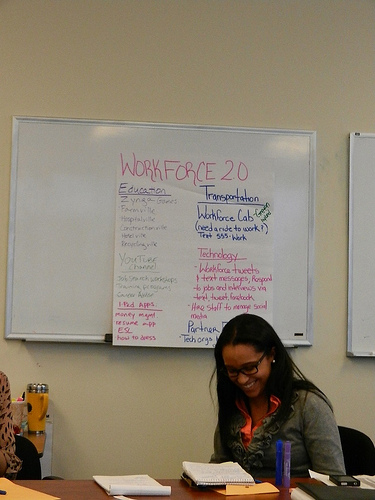 WORKFORCE 2.0
Education
Zynga-Games
Farmville
Hospitalville
Constructionville
Hotelville
Recyclingville
YouTube
Channel
Job Search workshops
I-Pad Apps:
money mgmt
resume app
EQ
how to dress
Transportation
Workforce Cab
(need a ride to work?)
Text 555-Work
Technology
- Workforce tweets
& text messages, Respond
to jobs and interviews via
text, tweet, facebook
- Hire staff to manage social
media
Partner
Tech orgs